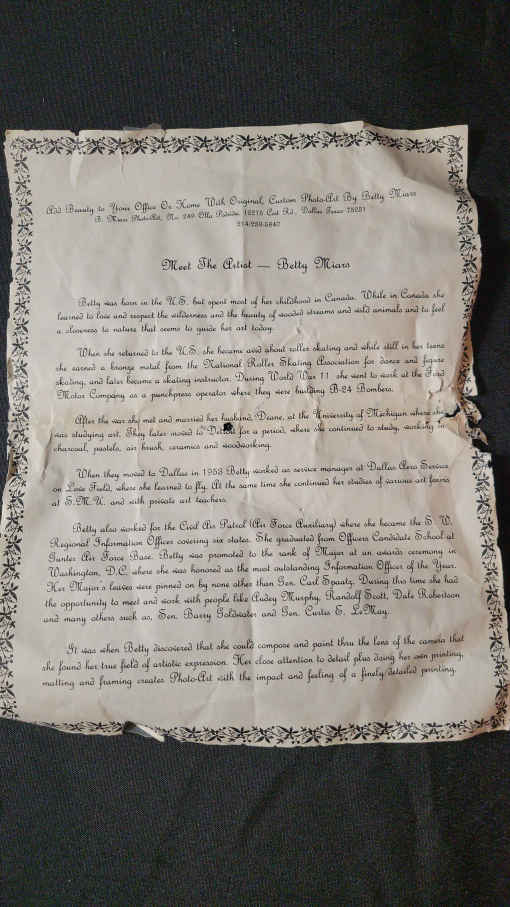 Add Beauty to Your Office Or Home With Original, Custom Photo-Art By Betty Miars
B. Miars Photo-Art, No. 249 Olla Podrida, 12215 Coit Rd., Dallas Texas 75251
214/239-5840
Meet The Artist — Betty Miars
Betty was born in the U.S. but spent most of her childhood in Canada. While in Canada she
learned to love and respect the wilderness and the beauty of wooded streams and wild animals and to feel
a closeness to nature that seems to guide her art today.
When she returned to the U.S. she became avid about roller skating and while still in her teens
she earned a bronze metal from the National Roller Skating Association for dance and figure
skating, and later became a skating instructor. During World War 11 she went to work at the Ford
Motor Company as a punchpress operator where they were building B-24 Bombers.
After the war she met and married her husband, Deane, at the University of Michigan where she
was studying art. They later moved to Detroit for a period, where she continued to study, working in
charcoal, pastels, air brush, ceramics and woodworking.
When they moved to Dallas in 1958 Betty worked as service manager at Dallas Aero Service
on Love Field, where she learned to fly. At the same time she continued her studies of various art forms
at S.M.U. and with private art teachers.
Betty also worked for the Civil Air Patrol (Air Force Auxiliary) where she became the S. W.
Regional Information Officer covering six states. She graduated from Officers Candidate School at
Gunter Air Force Base. Betty was promoted to the rank of Major at an awards ceremony in
Washington, D.C. where she was honored as the most outstanding Information Officer of the Year.
Her Major's leaves were pinned on by none other than Gen. Carl Spaatz. During this time she had
the opportunity to meet and work with people like Audey Murphy, Randolf Scott, Dale Robertson
and many others such as, Sen. Barry Goldwater and Gen. Curtis E. LeMay.
It was when Betty discovered that she could compose and paint thru the lens of the camera that
she found her true field of artistic expression. Her close attention to detail plus doing her own printing,
matting and framing creates Photo-Art with the impact and feeling of a finely detailed painting.